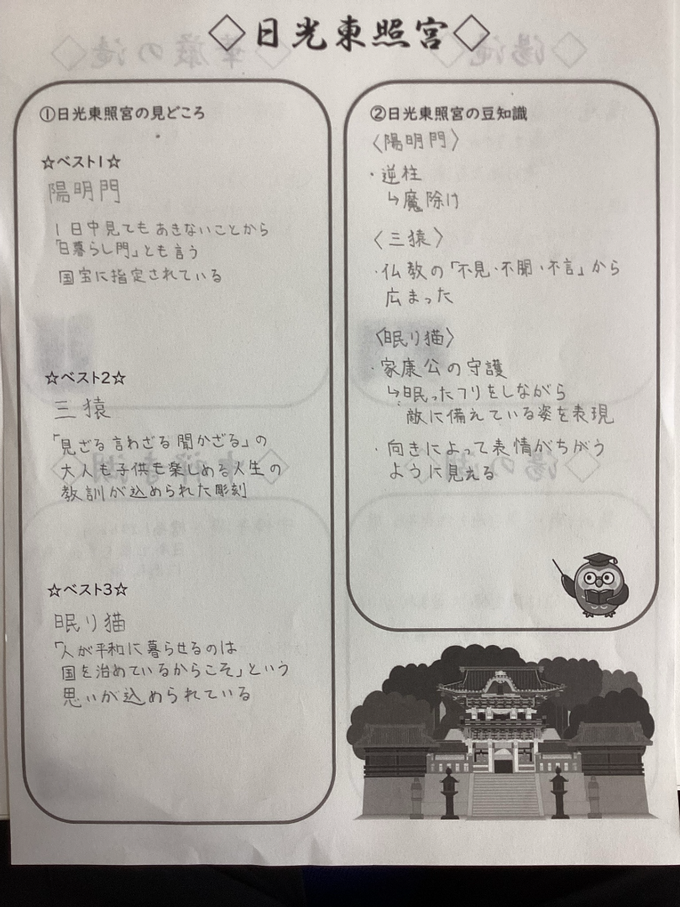 ◇日光東照宮◇
①日光東照宮の見どころ
☆ベスト1☆
陽明門
1日中見てもあきないことから
「日暮らし門」とも言う
国宝に指定されている
☆ベスト2☆
三猿
「見ざる言わざる聞かざる」の
大人も子供も楽しめる人生の
教訓が込められた彫刻
☆ベスト3☆
眠り猫
「人が平和に暮らせるのは
国を治めているからこそ」という
思いが込められている
②日光東照宮の豆知識
〈陽明門〉
・逆柱
↳魔除け
〈三猿〉
・仏教の「不見・不聞・不言」から
広まった
〈眠り猫〉
・家康公の守護
↳眠ったフリをしながら
敵に備えている姿を表現
・向きによって表情がちがう
ように見える